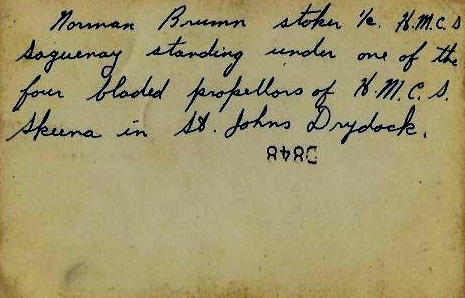 Norman Brumn stoker 1/c. H.M.C.S
Saguenay standing under one of the
four bladed propellors of H.M.C.S.
Skeena in St. Johns Drydock.
D848